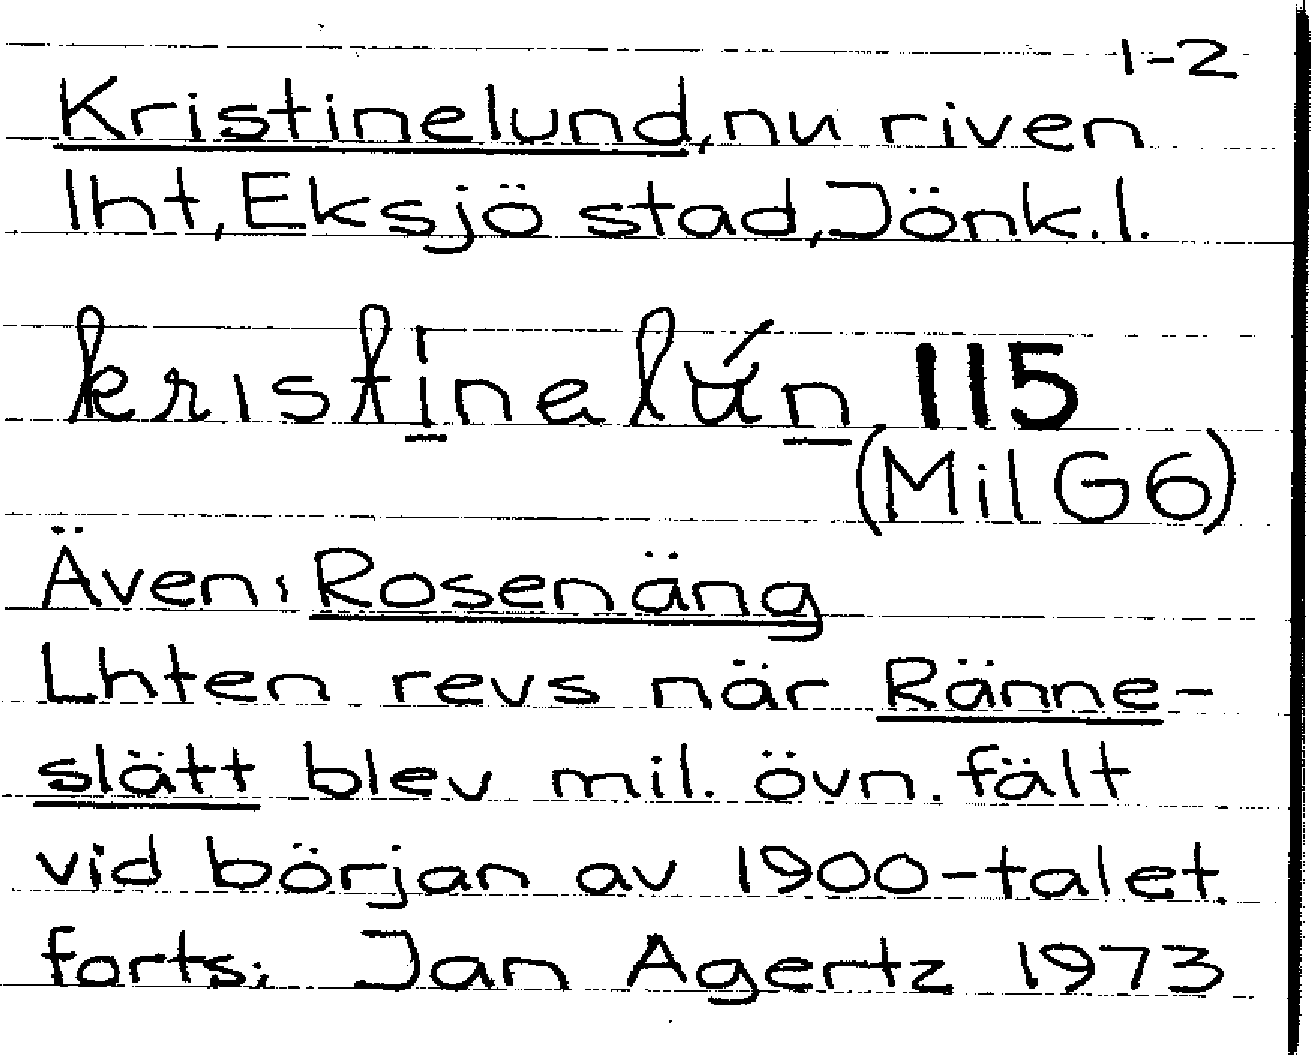 1-2
Kristinelund, nu riven
lht, Eksjö stad, Jönk. l.
kristinelún 115
(Mil G6)
Även: Rosenäng
Lhten revs när Ränne-
slätt blev mil. övn. fält
vid början av 1900-talet.
forts; Jan Agertz 1973